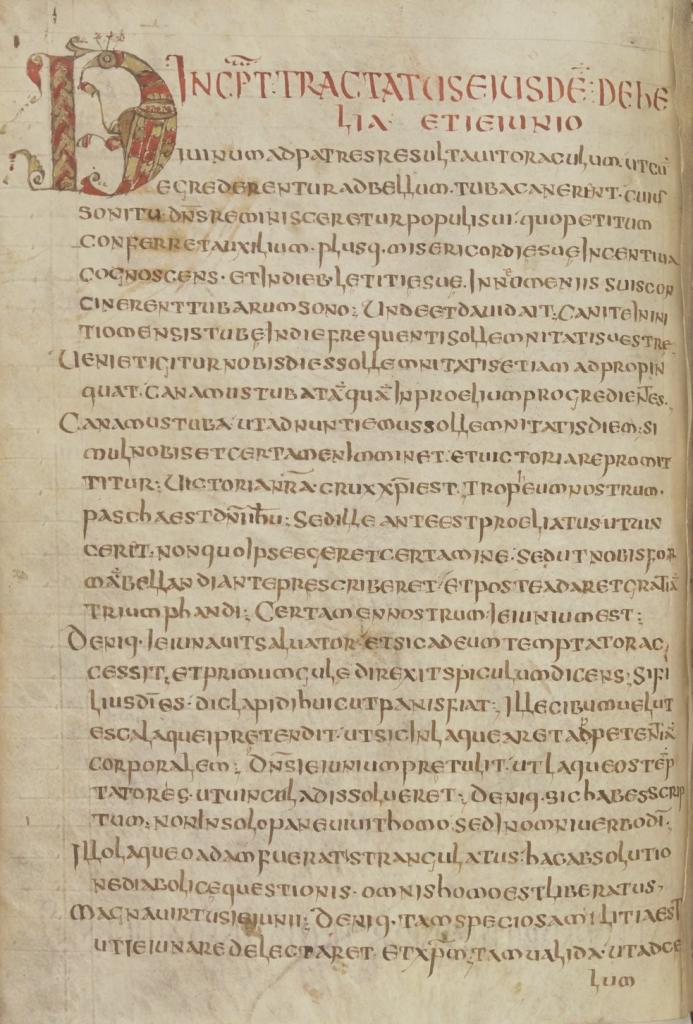 INCP̄T: TRACTATUS EIUSDĒ: DE HE
LIA ET IEIUNIO
DIUINUM AD PATRES RESULTAUIT ORACULUM UT CŪ
EGREDERENTUR AD BELLUM. TUBA CANERENT. CUIUS
SONITU DN̄S REMINISCERETUR POPULI SUI. QUO PETITUM
CONFERRET AUXILIUM. PLUSQ. MISERICORDIE SUE INCENTIUA
COGNOSCENS. ET IN DIEB. LETITIE SUE. IN NUMENIIS SUIS CON
CINERENT TUBARUM SONO; UNDE ET DAUID AIT; CANITE IN INI
TIO MENSIS TUBE IN DIE FREQUENTI SOLLEMNITATIS UESTRE
UENIET IGITUR NOBIS DIES SOLLEMNITATIS ETIAM ADPROPIN
QUAT. CANAMUS TUBA TĀQUĀ IN PROELIUM PROGREDIENTES.
CANAMUS TUBA UT ADNUNTIEMUS SOLLEMNITATIS DIEM. SI
MUL NOBIS ET CERTAMEN IMMINET. ET UICTORIA REPROMIT
TITUR; UICTORIA NR̄A CRUX XP̄I EST. TROPEUM NOSTRUM.
PASCHA EST DN̄I IHU; SED ILLE ANTE EST PROELIATUS UT UIN
CERET. NON QUO IPSE EGERET CERTAMINE. SED UT NOBIS FOR
MĀ BELLANDI ANTE PRESCRIBERET. ET POSTEA DARET GRATIĀ
TRIUMPHANDI; CERTAMEN NOSTRUM IEIUNIUM EST;
DENIQ. IEIUNAUIT SALUATOR ET SIC AD EUM TEMPTATOR AC
CESSIT; ET PRIMUM GULE DIREXIT SPICULUM DICENS; SI FI
LIUS DĪ ES. DIC LAPIDI HUIC UT PANIS FIAT; ILLECIBUM UELUT
ESCA LAQUEI PRETENDIT. UT SIC IN LAQUEARET ADPETENTIĀ
CORPORALEM; DN̄S IEIUNIUM PRETULIT. UT LAQUEOS TĒP
TATORES. UT UINCULA DISSOLUERET; DENIQ. SIC HABES SCRIP
TUM; NON IN SOLO PANE UIUIT HOMO. SED IN OMNI UERBO DĪ;
ILLO LAQUEO ADAM FUERAT STRANGULATUS; HAC ABSOLUTIO
NE DIABOLICE QUESTIONIS. OMNIS HOMO EST LIBERATUS,
MAGNA UIRTUS IEIUNII; DENIQ. TAM SPECIOSA MILITIA EST
UT IEIUNARE DELECTARET. ET XP̄M; TAM UALIDA. UT AD CE
LUM